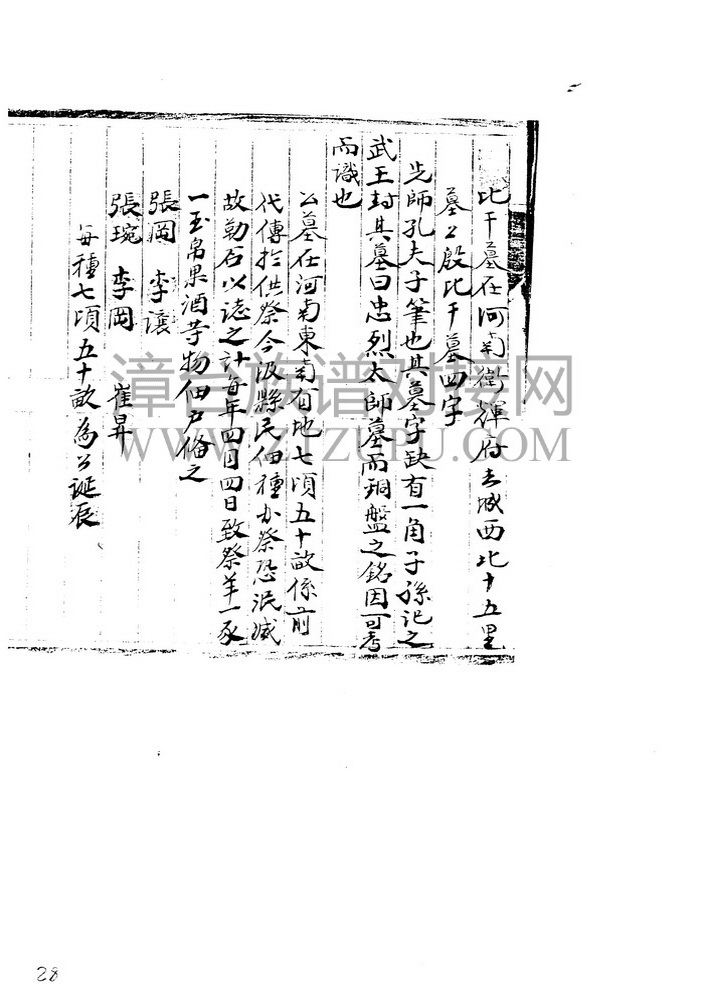 比干墓在河南衛輝府去城西北十五里
墓上殷比干墓四字
先師孔夫子筆也其墓字缺有一角子孫記之
武王封其墓曰忠烈太師墓而銅盤之銘因可考
而識也
公墓在河南東南有地七頃五十畝係前
代傳於供祭今汲縣民佃種办祭恐泯滅
故勒石以誌之計每年四月四日致祭羊一豕
一玉帛果酒等物佃戶俻之
張岡 李讓
張琬 李岡 崔昇
每種七頃五十畝為公誕辰
漳台族谱对接网
WWW.ZTZUPU.COM
28